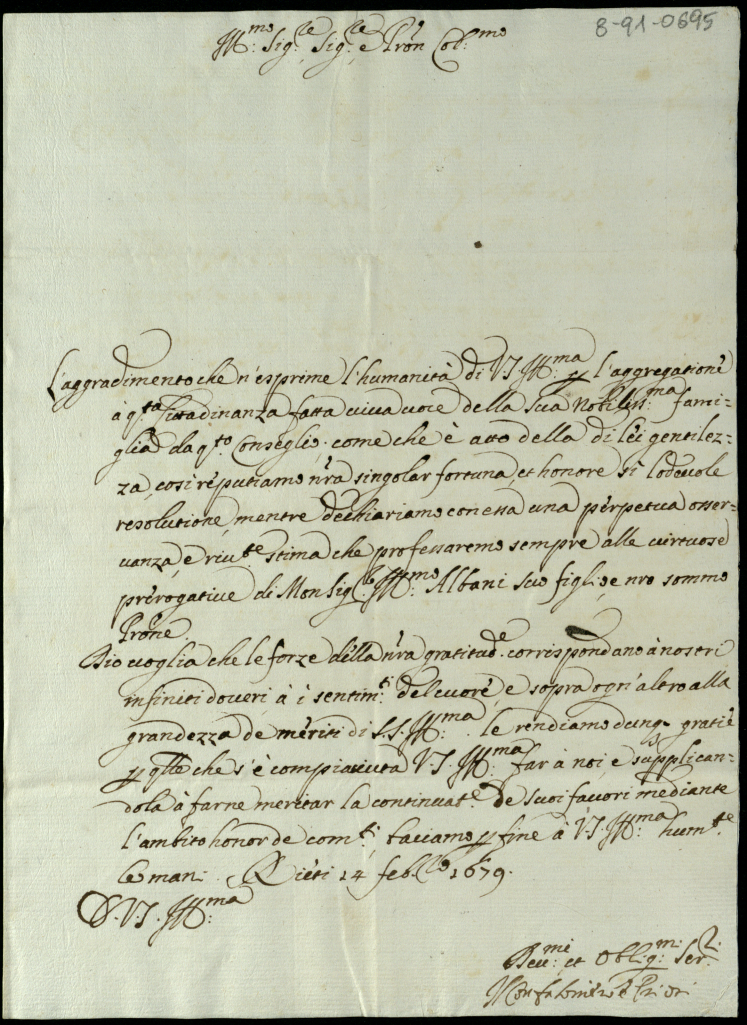 8-91-0695
Ill:mo Sig:re Sig:re e Pron Col:mo
L'aggradimento che n'esprime l'humanità di V.S. Ill:ma p l'aggregatione
à q.ta Cittadinanza fatta viva voce della sua Nobiliss:ma fami-
glia da q.to Conseglio, come che è atto della di lei gentilez-
za, cosi reputiamo nra singolar fortuna, et honore si lodevole
resolutione, mentre dechiariamo con essa una perpetua osser-
vanza, e riv.te stima che professaremo sempre alle virtuose
prerogative di Monsig.re Ill:mo Albani suo figl:o, e nro sommo
Prone.
Dio voglia che le forze della nra gratitud.e corrispondano à nostri
infiniti doveri, à i sentim:ti del cuore, e sopra ogn'altro alla
grandezza de meriti di S.S. Ill:ma. le rendiamo dunq. gratie
p qlle che s'è compiaciuta V.S. Ill:ma far à noi, e supplican-
dola à farne meritar la continuat.e de suoi favori mediante
l'ambito honor de com:ti, baciamo p fine à V.S. Ill:ma hum:te
le mani. Rieti 14 feb.ro 1679.
D. V.S. Ill:ma
Dev:mi et Oblig:mi Ser:ri
Il Confaloniero e Priori